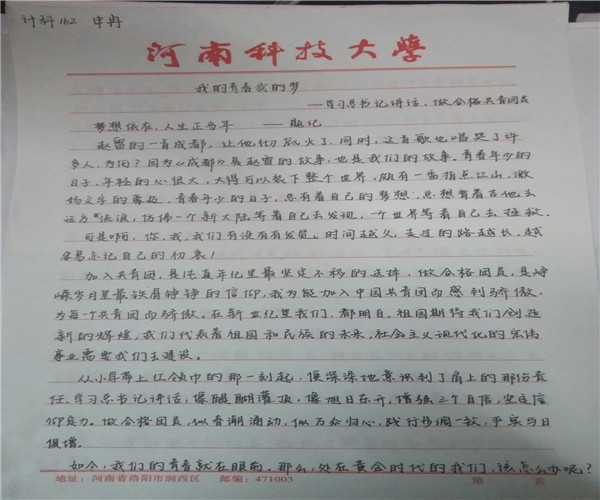 计科162 申冉
河南科技大学
我的青春我的梦
——学习总书记讲话,做合格共青团员
梦想依在,人生正当年 ——题记
赵雷的一首成都,让他彻底火了,同时,这首歌也唱哭了许
多人,为何?因为《成都》是赵雷的故事,也是我们的故事。青春年少的
日子,年轻的心很大,大得可以放下整个世界,颇有一番指点江山,激
扬文字的意。青春年少的日子,总有着自己的梦想,总想背着吉他去
远方流浪,仿佛一个新大陆等着自己去发现,一个世界等着自己去拯救。
可是啊,你,我,我们有没有有发觉。时间越久,走过的路越长,越
容易忘记自己的初衷!
加入共青团,是吒直年纪里最坚定不移的选择,做合格团员,是峥
嵘岁月里最铁骨铮铮的信仰,我为能加入中国共青团而感到骄傲,
为每一个共青团而骄傲。在新世纪里我们,都明白,祖国期待我们创造
新的辉煌,我们代表着祖国和民族的未来,社会主义现代化的宏伟
事业需要我们去建设。
从小学带上红领巾的那一刻起,便深深地意识到了肩上的那份责
任,学习总书记讲话,像醍醐灌顶,像旭日东升,增强三个自信,坚定信
仰良方。做合格团员,似春潮涌动,似万众归心,践行步调一致,平实与日
俱增。
如今,我们的青春就在眼前,那么,处在黄金时代的我们,该怎么办呢?
地址:河南省洛阳市涧西区 邮编:471003 第 页